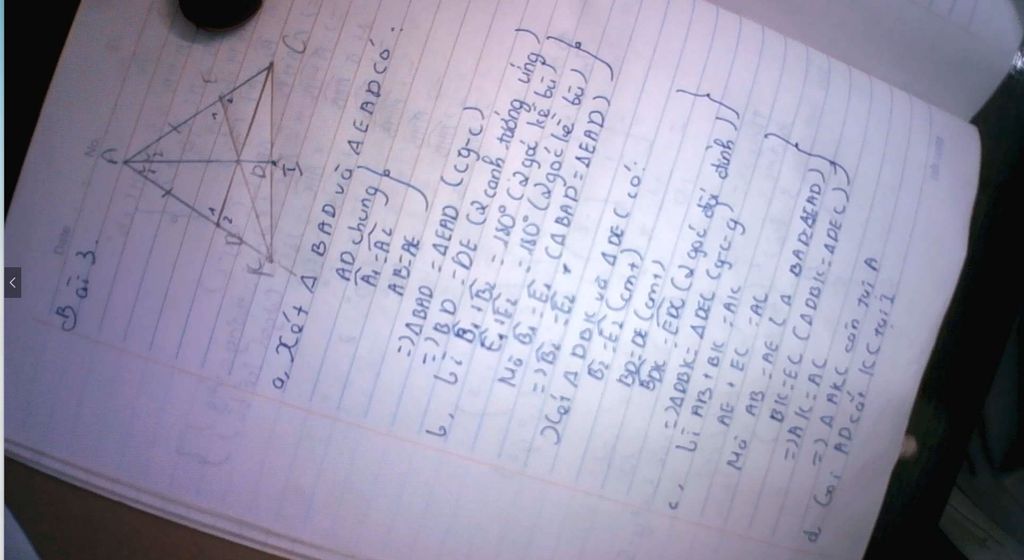 No.
Date
Bài 3.
A
1 2
E
1 2
C
D
I
B
1 2
K
a, Xét Δ BAD và ΔEAD có:
AD chung
Â1 = Â2
AB=AE
=> ΔBAD = ΔEAD (cg-c)
=> BD = DE (2 cạnh tương ứng)
b, Vì B̂1 + B̂2 = 180° (2 góc kề bù)
Ê1 + Ê2 = 180° (2 góc kề bù)
Mà B̂1 = Ê1 (ΔBAD = ΔEAD)
=> B̂2 = Ê2
Xét Δ DBK và ΔDEC có:
B̂2 = Ê2 (cmt)
BD=DE (cmt)
BDK = EDC (2 góc đối đỉnh)
=> ΔDBK = ΔDEC (g-c-g)
c, Vì AB + BK = AK
AE + EC = AC
Mà AB = AE (Δ BAD=ΔEAD)
BK = EC (ΔDBK = ΔDEC)
=> AK = AC
=> Δ AKC cân tại A
d Gọi AD cắt KC tại I